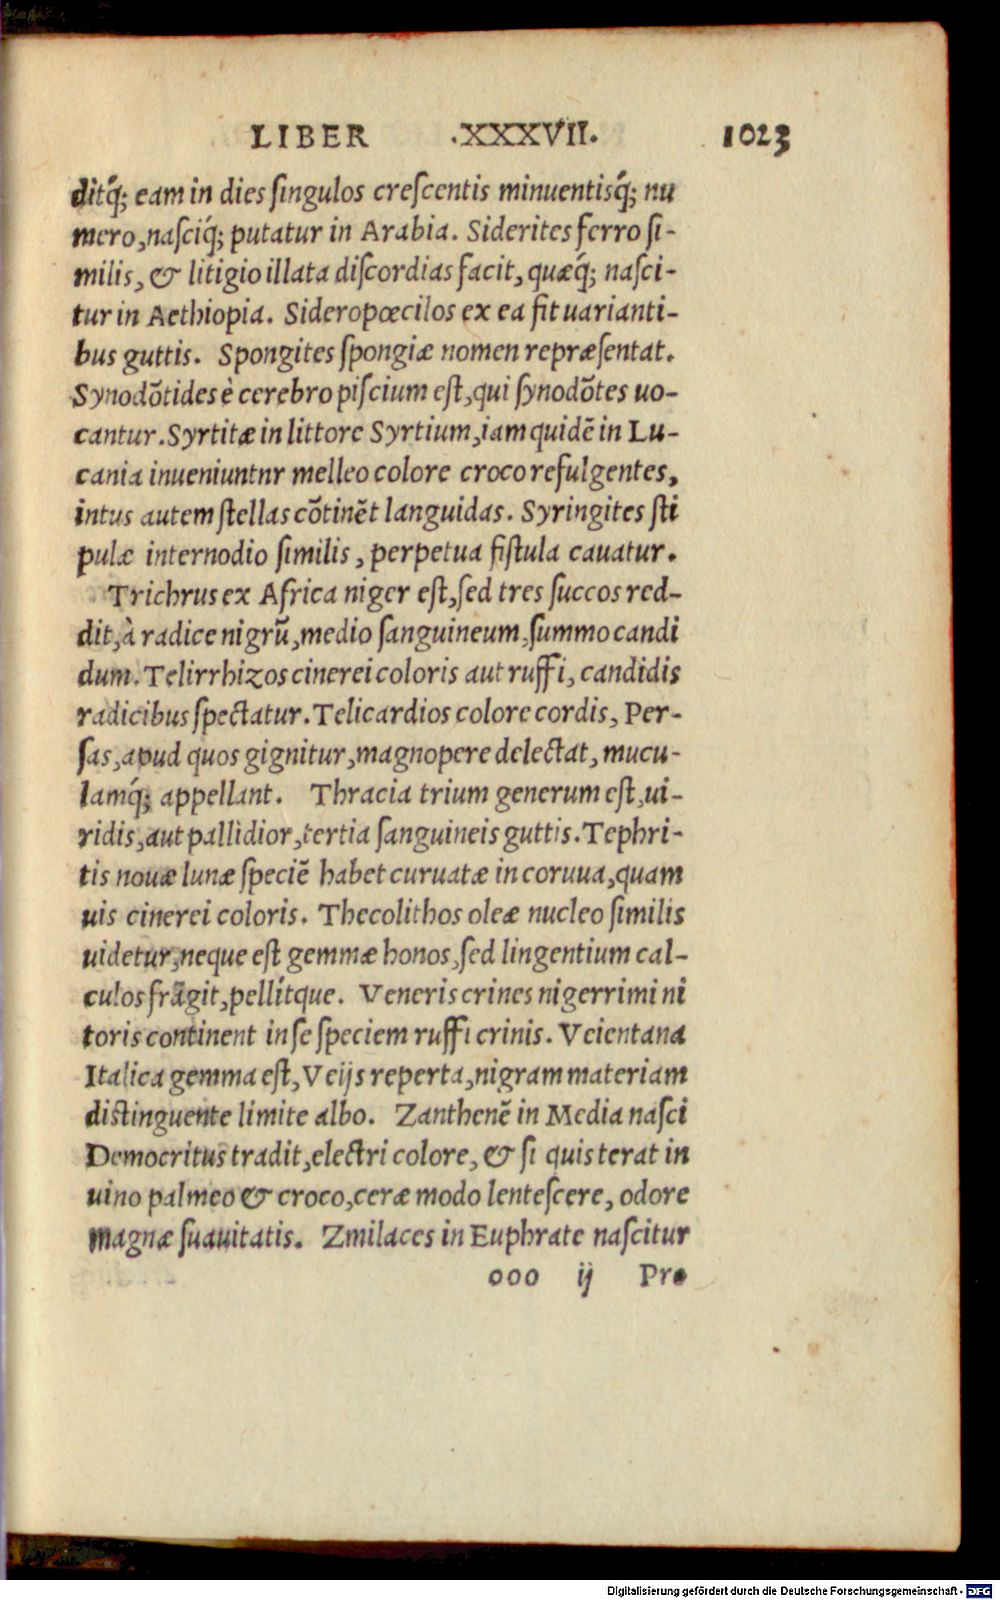 LIBER .XXXVII. 1023
ditq́; eam in dies ſingulos creſcentis minuentisq́; nu
mero, naſciq́; putatur in Arabia. Siderites ferro ſi-
milis, & litigio illata diſcordias facit, quæq́; naſci-
tur in Aethiopia. Sideropœcilos ex ea fit uarianti-
bus guttis. Spongites ſpongiæ nomen repræſentat.
Synodõtides è cerebro piſcium eſt, qui ſynodõtes uo-
cantur. Syrtitæ in littore Syrtium, iam quidẽ in Lu-
cania inueniuntnr melleo colore croco refulgentes,
intus autem ſtellas cõtinẽt languidas. Syringites ſti
pulæ internodio ſimilis, perpetua fiſtula cauatur.
Trichrus ex Africa niger eſt, ſed tres ſuccos red-
dit, à radice nigrũ, medio ſanguineum, ſummo candi
dum. Telirrhizos cinerei coloris aut ruffi, candidis
radicibus ſpectatur. Telicardios colore cordis, Per-
ſas, apud quos gignitur, magnopere delectat, mucu-
lamq́; appellant. Thracia trium generum eſt, ui-
ridis, aut pallidior, tertia ſanguineis guttis. Tephri-
tis nouæ lunæ ſpeciẽ habet curuatæ in coruua, quam
uis cinerei coloris. Thecolithos oleæ nucleo ſimilis
uidetur, neque eſt gemmæ honos, ſed lingentium cal-
culos frãgit, pellítque. Veneris crines nigerrimi ni
toris continent in ſe ſpeciem ruffi crinis. Veientana
Italica gemma eſt, Veijs reperta, nigram materiam
diſtinguente limite albo. Zanthenẽ in Media naſci
Democritus tradit, electri colore, & ſi quis terat in
uino palmeo & croco, ceræ modo lenteſcere, odore
magnæ ſuauitatis. Zmilaces in Euphrate naſcitur
ooo ij Pro
Digitalisierung gefördert durch die Deutsche Forschungsgemeinschaft - DFG